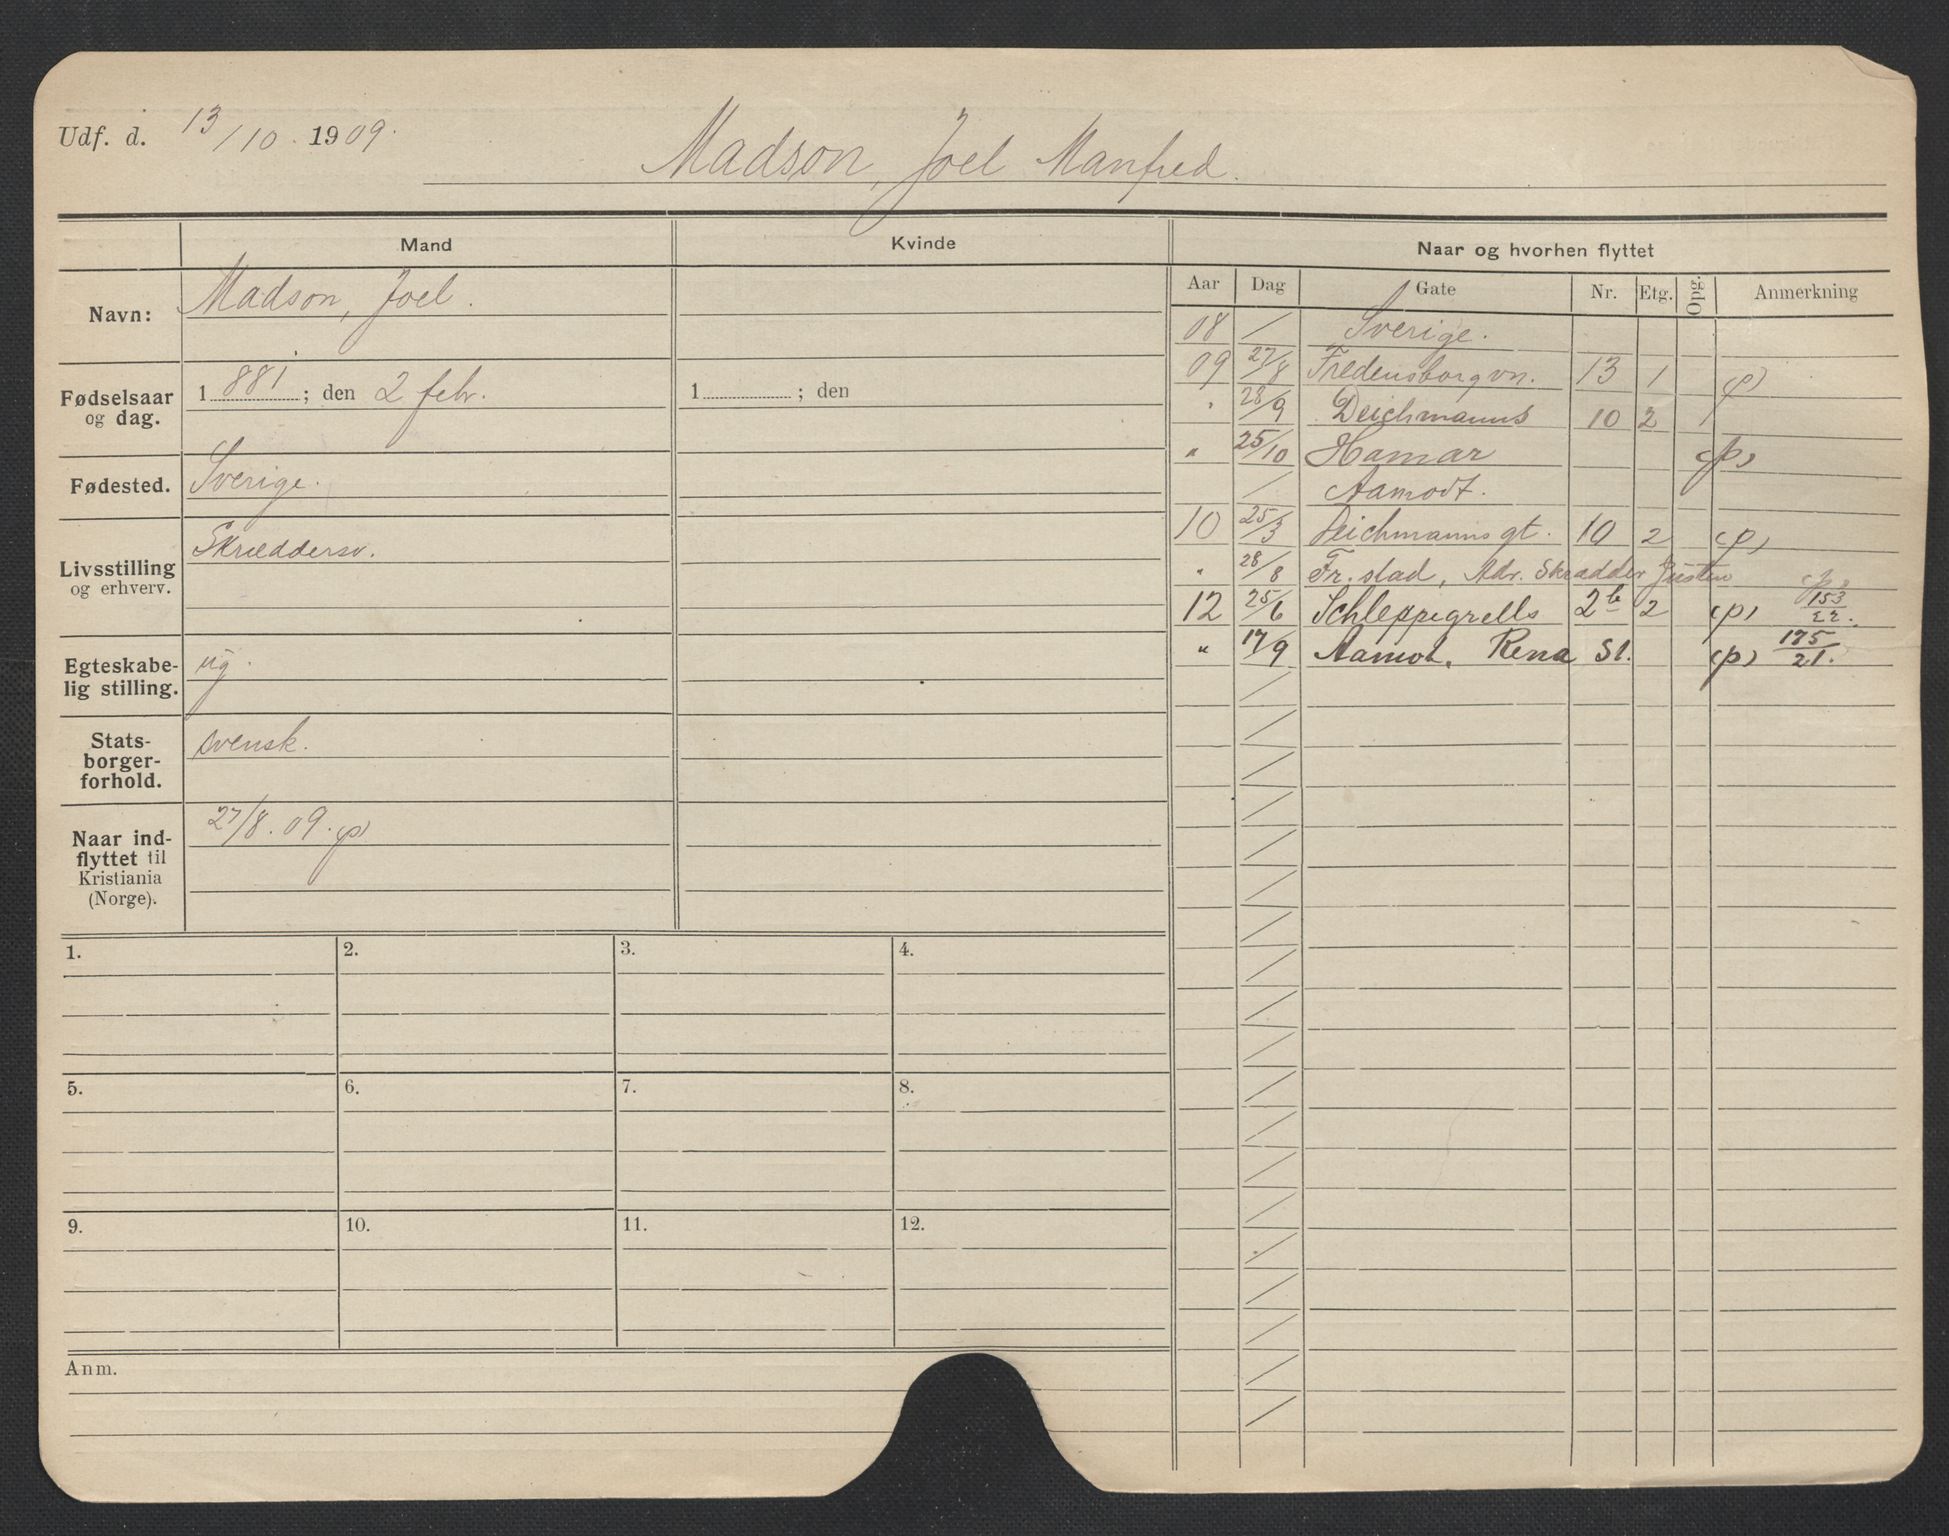 Udf. d. 13/10. 1909.
Madson, Joel Manfred.
Mand
Kvinde
Naar og hvorhen flyttet
Navn: Madson, Joel.
Fødselsaar og dag. 1881; den 2 febr.
1 ; den
Fødested. Sverige.
Livsstilling og erhverv. Skræddersv.
Egteskabe-
lig stilling. ug.
Stats-
borger-
forhold. svensk.
Naar ind-
flyttet til
Kristiania
(Norge). 27/8. 09. (p)
Aar Dag Gate Nr. Etg. Opg. Anmerkning
08 / Sverige.
09 27/8 Fredensborgvn. 13 1 (p)
" 28/9 Deichmanns 10 2 1
" 25/10 Hamar (p)
/ Aamodt.
10 25/3 Deichmanns gt. 10 2 (p)
" 28/8 Fr. stad, Adr. Skrædder (p)
12 25/6 Schleppegrells 2b 2 (p) 153/22.
" 17/9 Aamot, Rena St. (p) 175/21.
1. 2. 3. 4.
5. 6. 7. 8.
9. 10. 11. 12.
Anm.